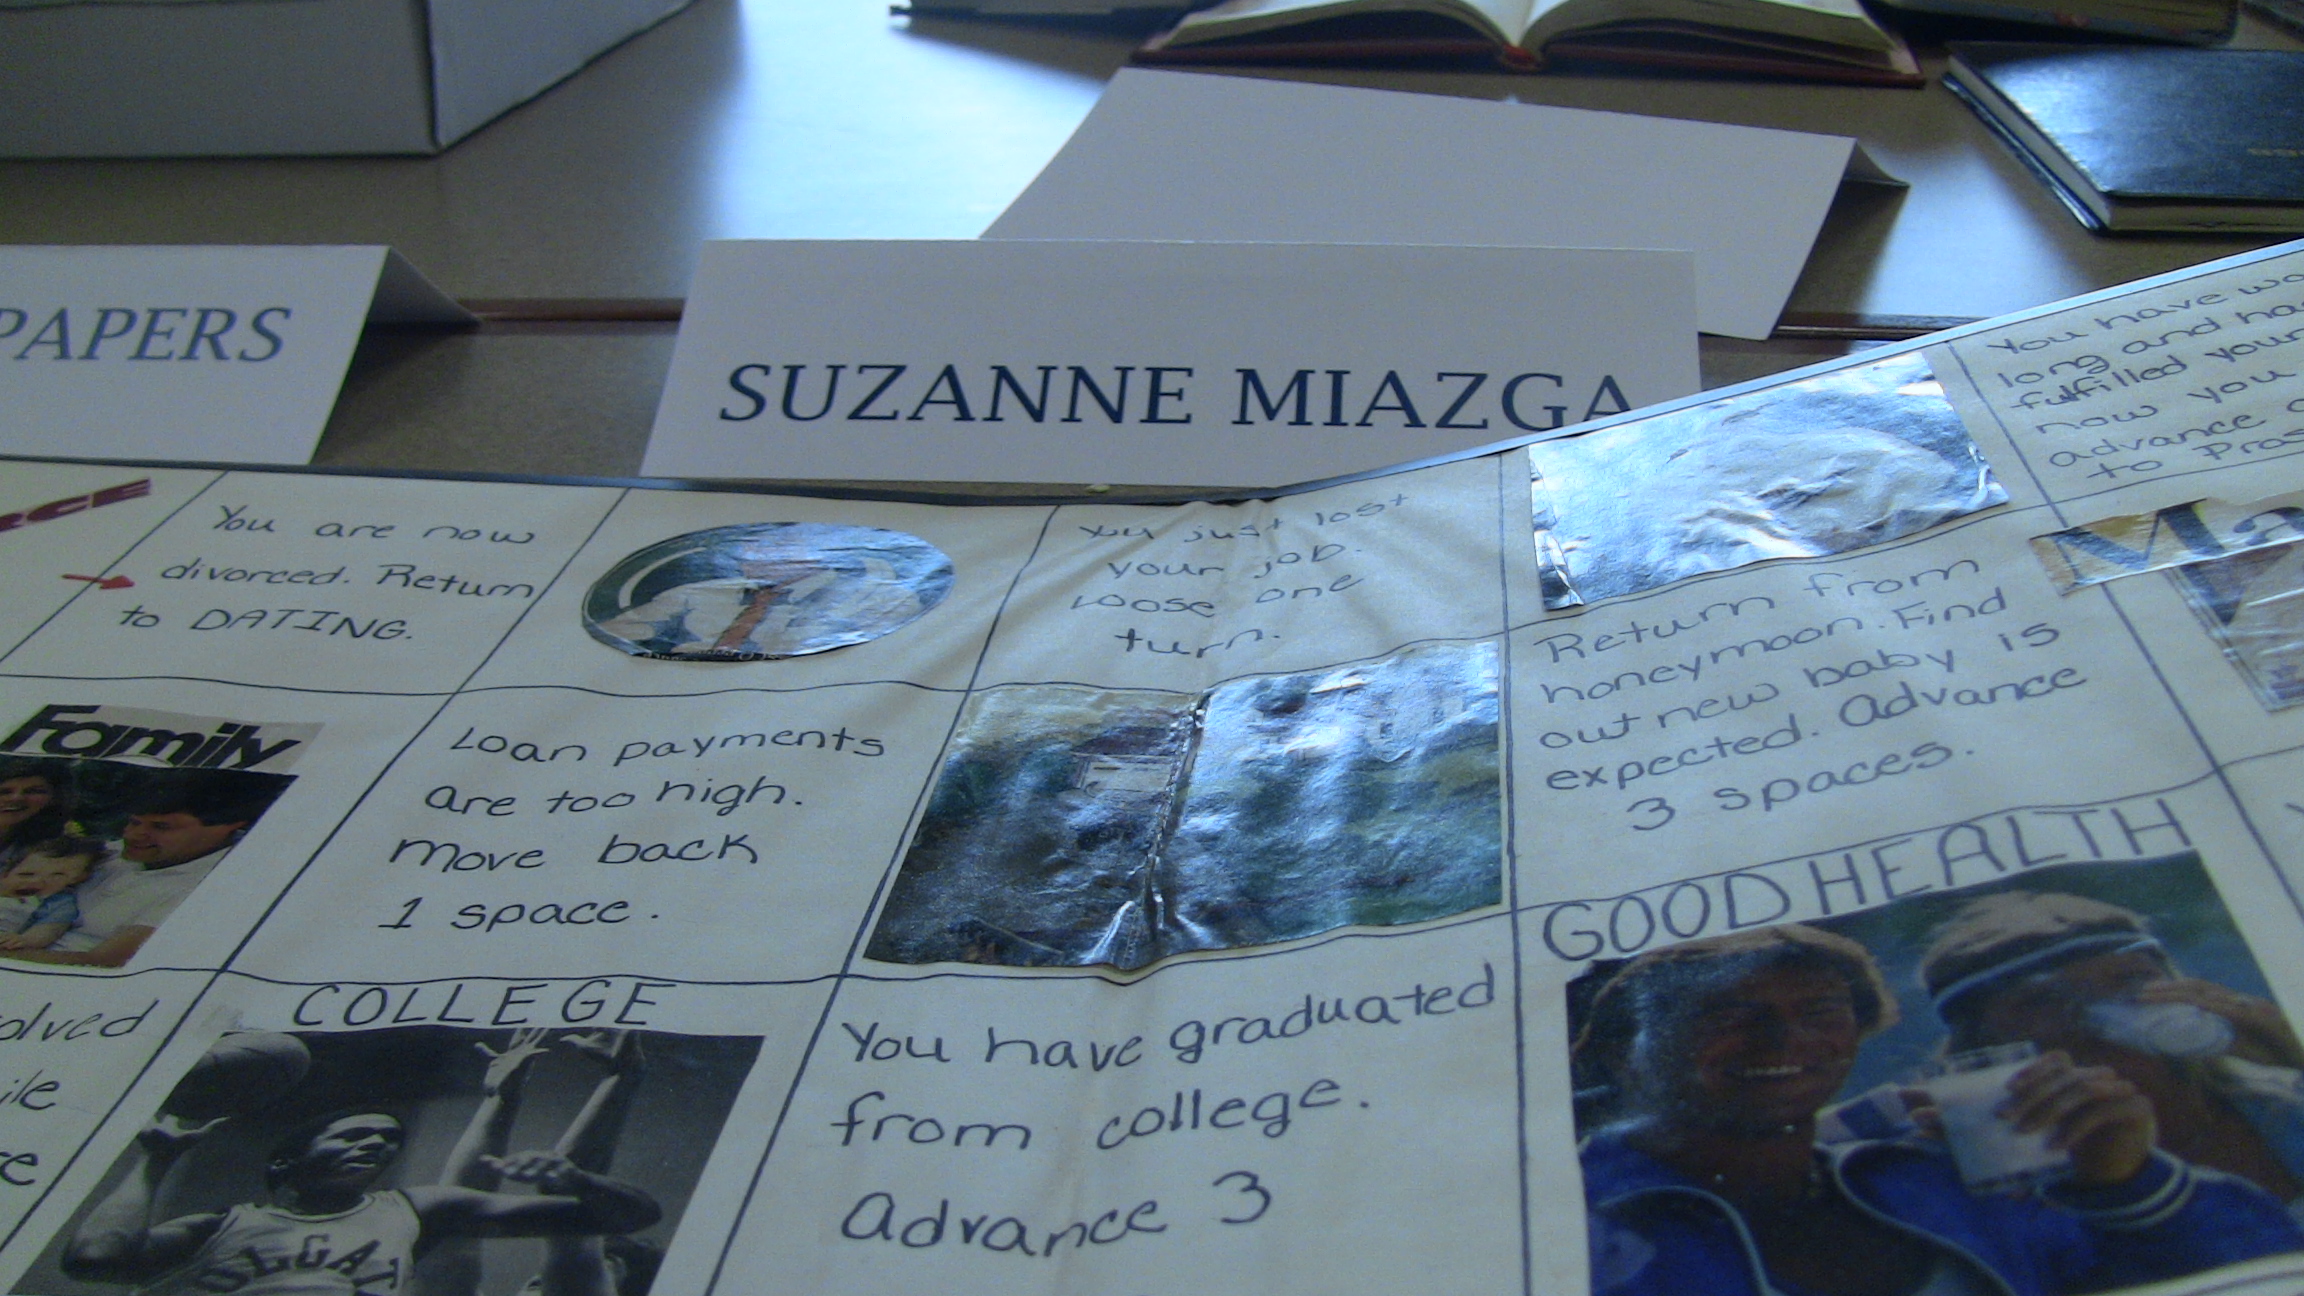 PAPERS
SUZANNE MIAZGA
You are now
divorced. Return
to DATING.
You just lost
your job.
Loose one
turn.
You have
long and
fulfilled your
now you
advance
to
Family
Loan payments
are too high.
Move back
1 space.
Return from
honeymoon. Find
out new baby is
expected. Advance
3 spaces.
COLLEGE
You have graduated
from college.
Advance 3
GOOD HEALTH